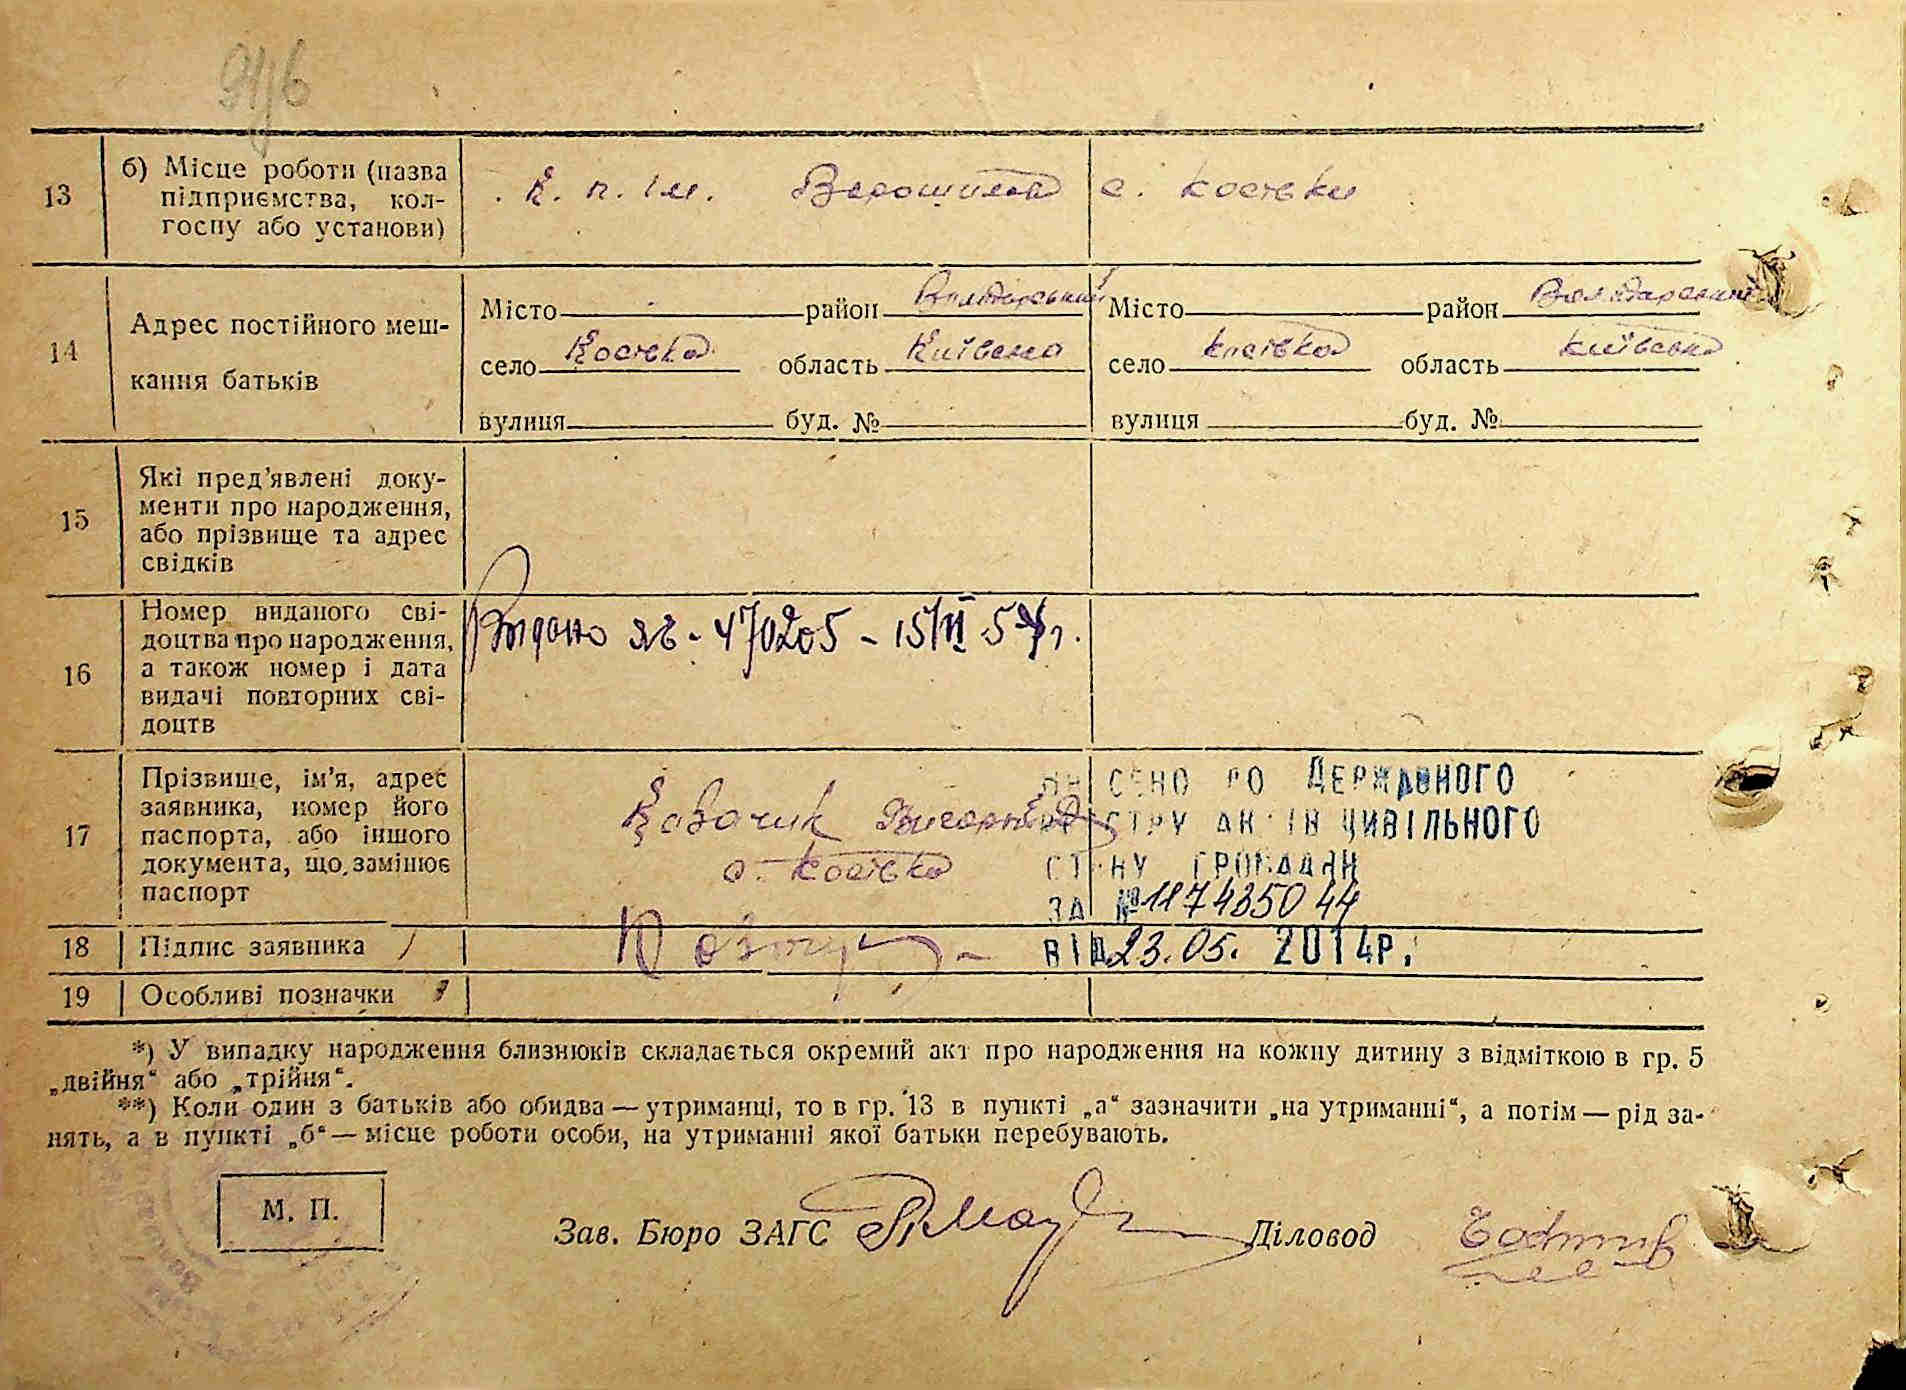 13
б) Місце роботи (назва
підприємства, кол-
госпу або установи)
К. п. ім. Ворошилова с. Косівки
14
Адрес постійного меш-
кання батьків
Місто район Володарський
село Косівка область Київська
вулиця буд. №
Місто район Володарський
село Косівка область Київська
вулиця буд. №
15
Які пред'явлені доку-
менти про народження,
або прізвище та адрес
свідків
16
Номер виданого сві-
доцтва про народження,
а також номер і дата
видачі повторних сві-
доцтв
Видано ЯБ - 470205 - 15/VI
17
Прізвище, ім'я, адрес
заявника, номер його
паспорта, або іншого
документа, що замінює
паспорт
с. Косівка
ВНЕСЕНО ДО ДЕРЖАВНОГО
РЕЄСТРУ АКТІВ ЦИВІЛЬНОГО
СТАНУ ГРОМАДЯН
ЗА №117435044
ВІД 23.05. 2014Р.
18
Підпис заявника
19
Особливі позначки
*) У випадку народження близнюків складається окремий акт про народження на кожну дитину з відміткою в гр. 5
„двійня“ або „трійня“.
**) Коли один з батьків або обидва — утриманці, то в гр. 13 в пункті „а“ зазначити „на утриманні“, а потім — рід за-
нять, а в пункті „б“ — місце роботи особи, на утриманні якої батьки перебувають.
М. П.
Зав. Бюро ЗАГС Діловод